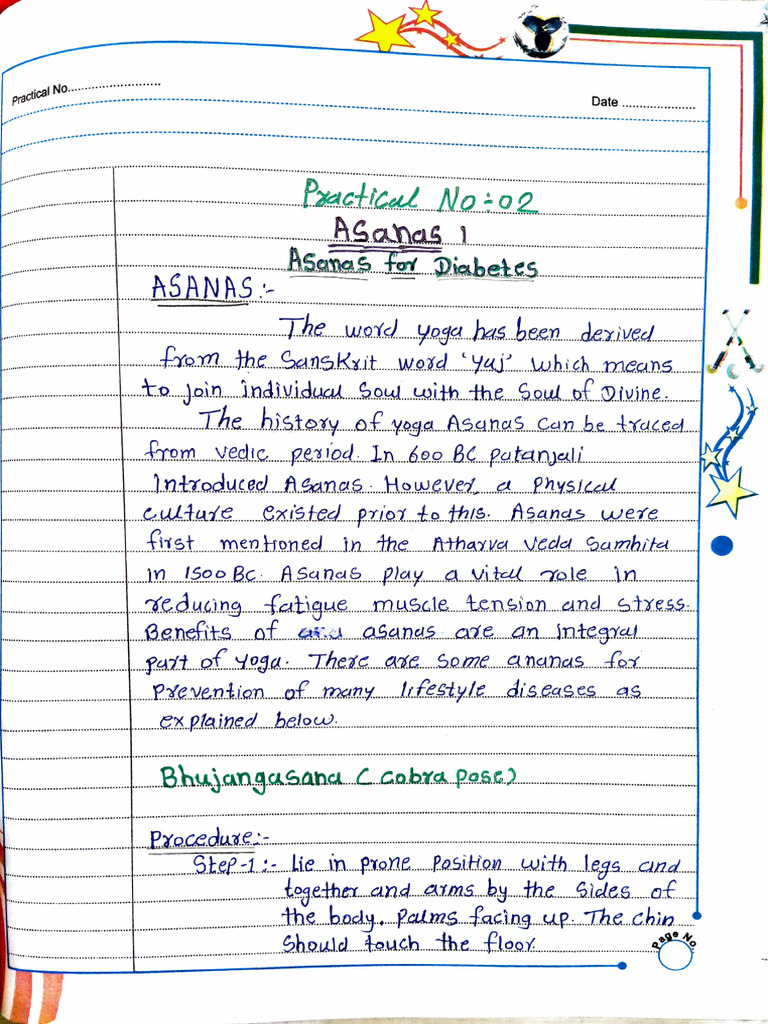 Practical No.......................
Date ...................
Practical No:-02
Asanas 1
Asanas for Diabetes
ASANAS:-
The word yoga has been derived
from the Sanskrit word 'yuj' which means
to join individual Soul with the Soul of Divine.
The history of yoga Asanas can be traced
from vedic period. In 600 BC patanjali
introduced Asanas. However, a physical
culture existed prior to this. Asanas were
first mentioned in the Atharva veda Samhita
in 1500 BC. Asanas play a vital role in
reducing fatigue muscle tension and stress.
Benefits of asanas are an integral
part of yoga. There are some ananas for
prevention of many lifestyle diseases as
explained below.
Bhujangasana (Cobra pose)
Procedure:-
Step-1:- Lie in prone position with legs and
together and arms by the sides of
the body. Palms facing up. The chin
should touch the floor.
Page No.